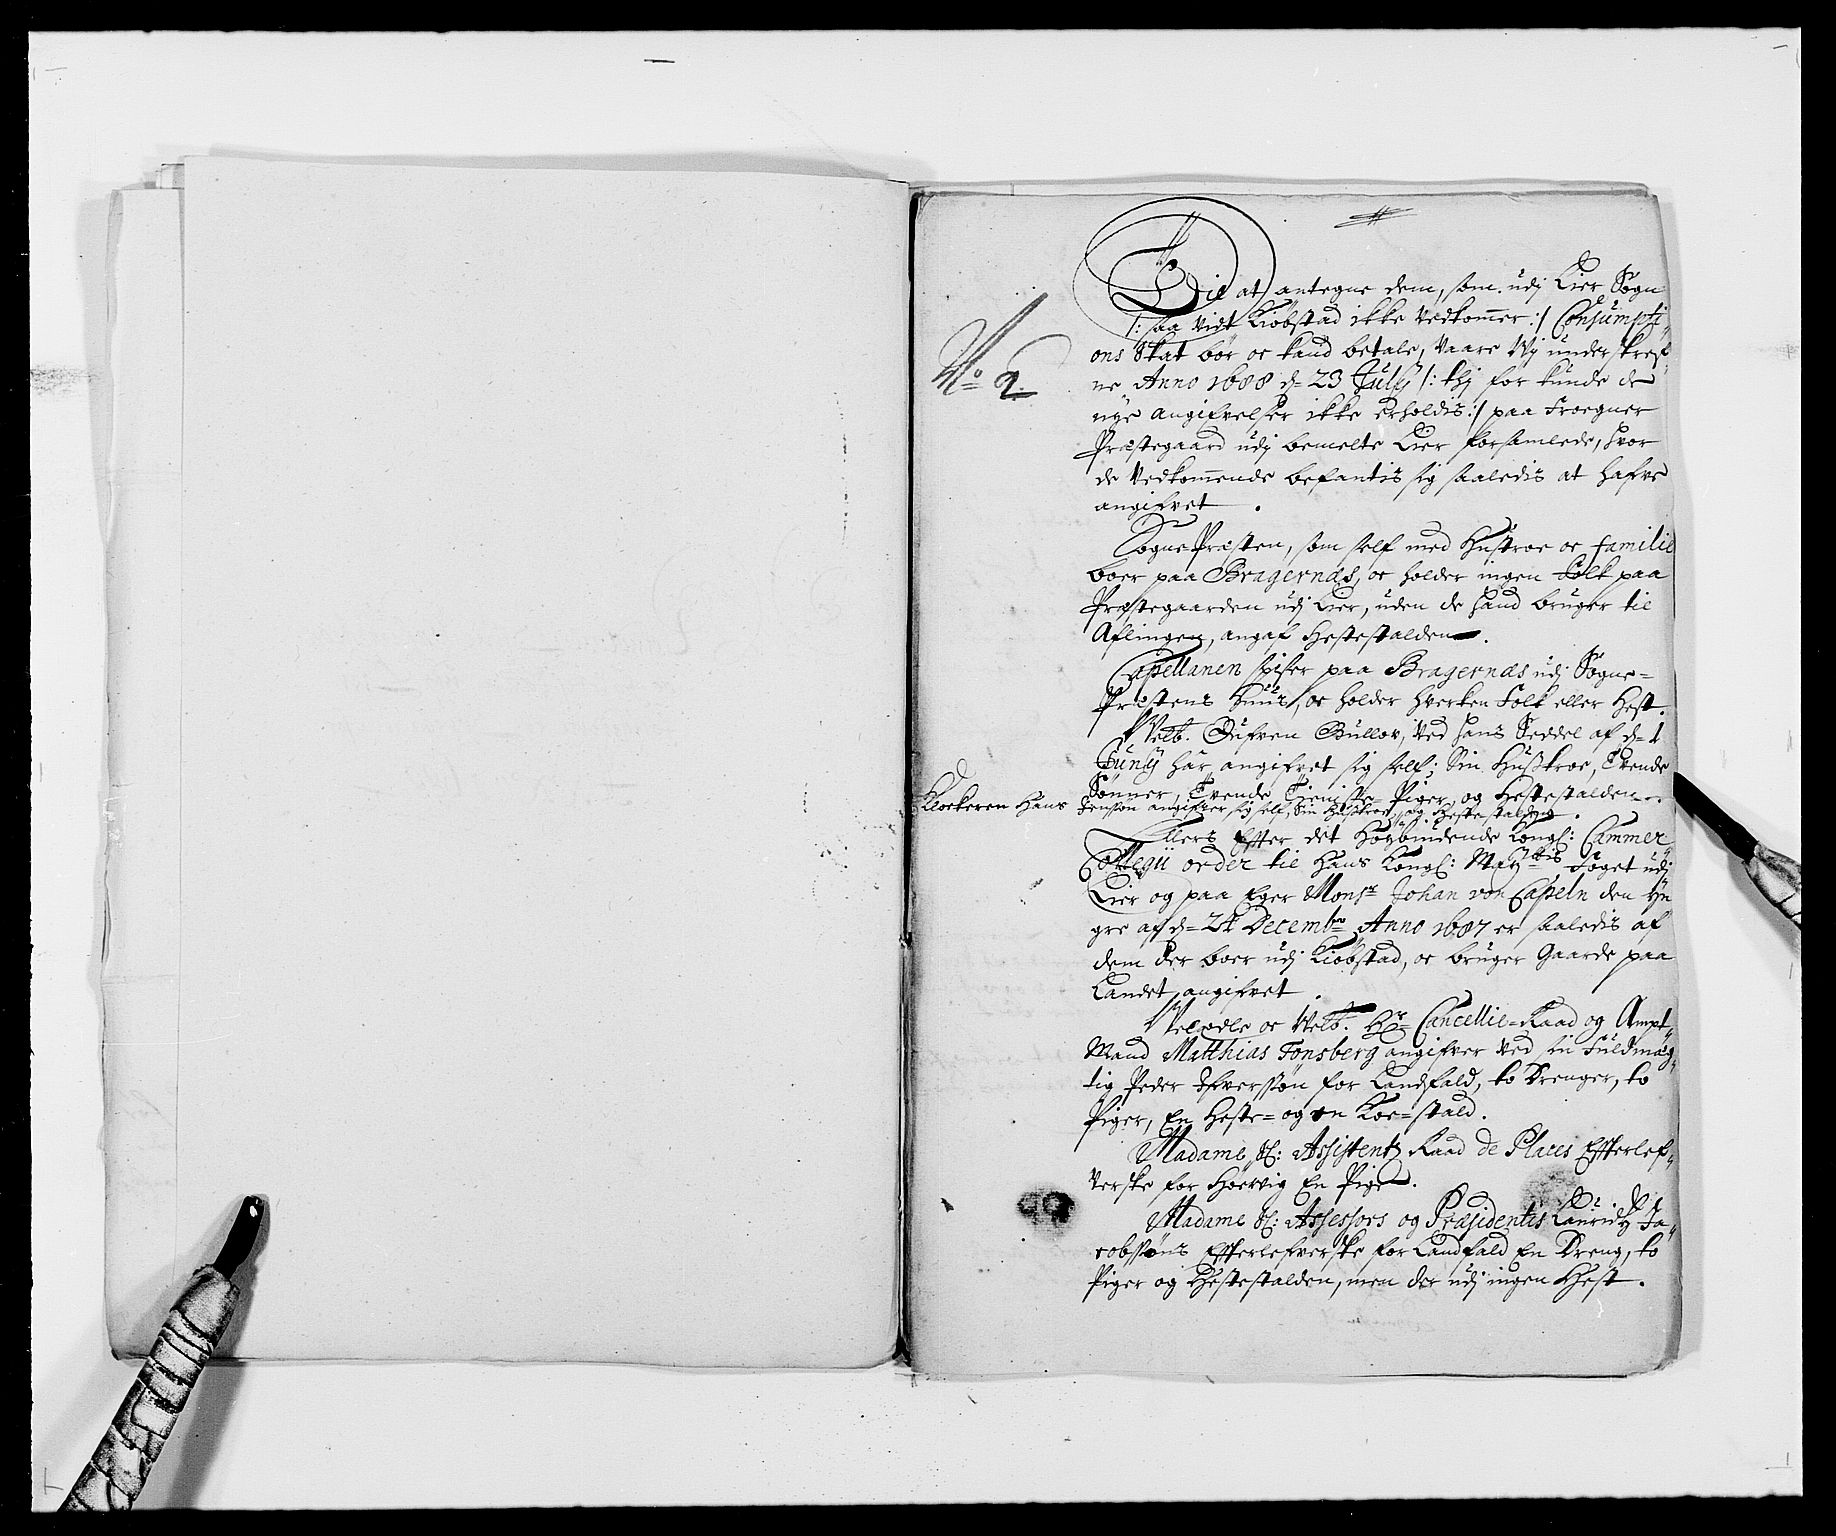 No 2.
Til at antegne dem, som udj Lier Sogn
/: saa vidt Kiöbstad ikke vedkommer :/ Consumpti-
ons Skat bör oc kand betale, vaare Wj underskref-
ne Anno 1688 d= 23 July /: thj för kunde de
nye angifvelser ikke erholdis :/ paa Froegner
Præstegaard udj bemelte Lier forsamlede, hvor
de vedkommende befantis sig saaledis at hafve
angifvet.
Sogne Præsten, som self med Hustroe oc familie
boer paa Bragernæs, oc holder ingen Folk paa
Præstegaarden udj Lier, uden de hand bruger til
Aflingen, angaf Hestestalden.
Capellanen spiser paa Bragernæs udj Sogne-
Præstens Huus, oc holder hverken Folk eller Hest.
Welb. Gufven Bullov, ved hans Seddel af d= 1
Juny har angifvet sig self; Sin Hustroe, Tvende
Sönner, Tvende Tieniste-Piger, og Hestestalden
Klockeren Hans Jenssön angifver sig self, Sin Hustroe, og Hestestalden.
Ellers Effter det Höybiudende Kongl: Cammer
Collegii order til Hans Kongl: Maytz Foget udj
Lier og paa Eger Monsr Johan von Capeln den Yn
gre af d= 24 Decembr Anno 1687 er saaledis af
dem der boer udj Kiöbstad, oc bruger Gaarde paa
Landet, angifvet.
Velædle oc Welb. Hr Cancellie-Raad og Ampt-
Mand Matthias Tonsberg angifver ved sin Fuldmæg-
tig Peder Ifverssön for Landfald, to Drenger, to
Piger, En Heste- og en Koe-stald.
Madame Sl: Assistentz Raad de Places Effterlef-
verske for Hoervig En Pige.
Madame Sl: Assessors og Præsidentis Lauridtz Ja-
cobssöns Effterlefverske for Landfald En Dreng, to
Piger og Hestestalden, men der udj ingen Hest.